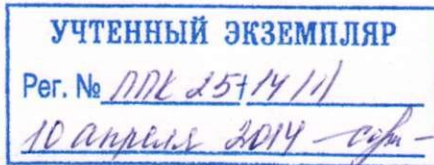 УЧТЕННЫЙ ЭКЗЕМПЛЯР
Рег. № ППК 25+14/11
10 апреля 2014